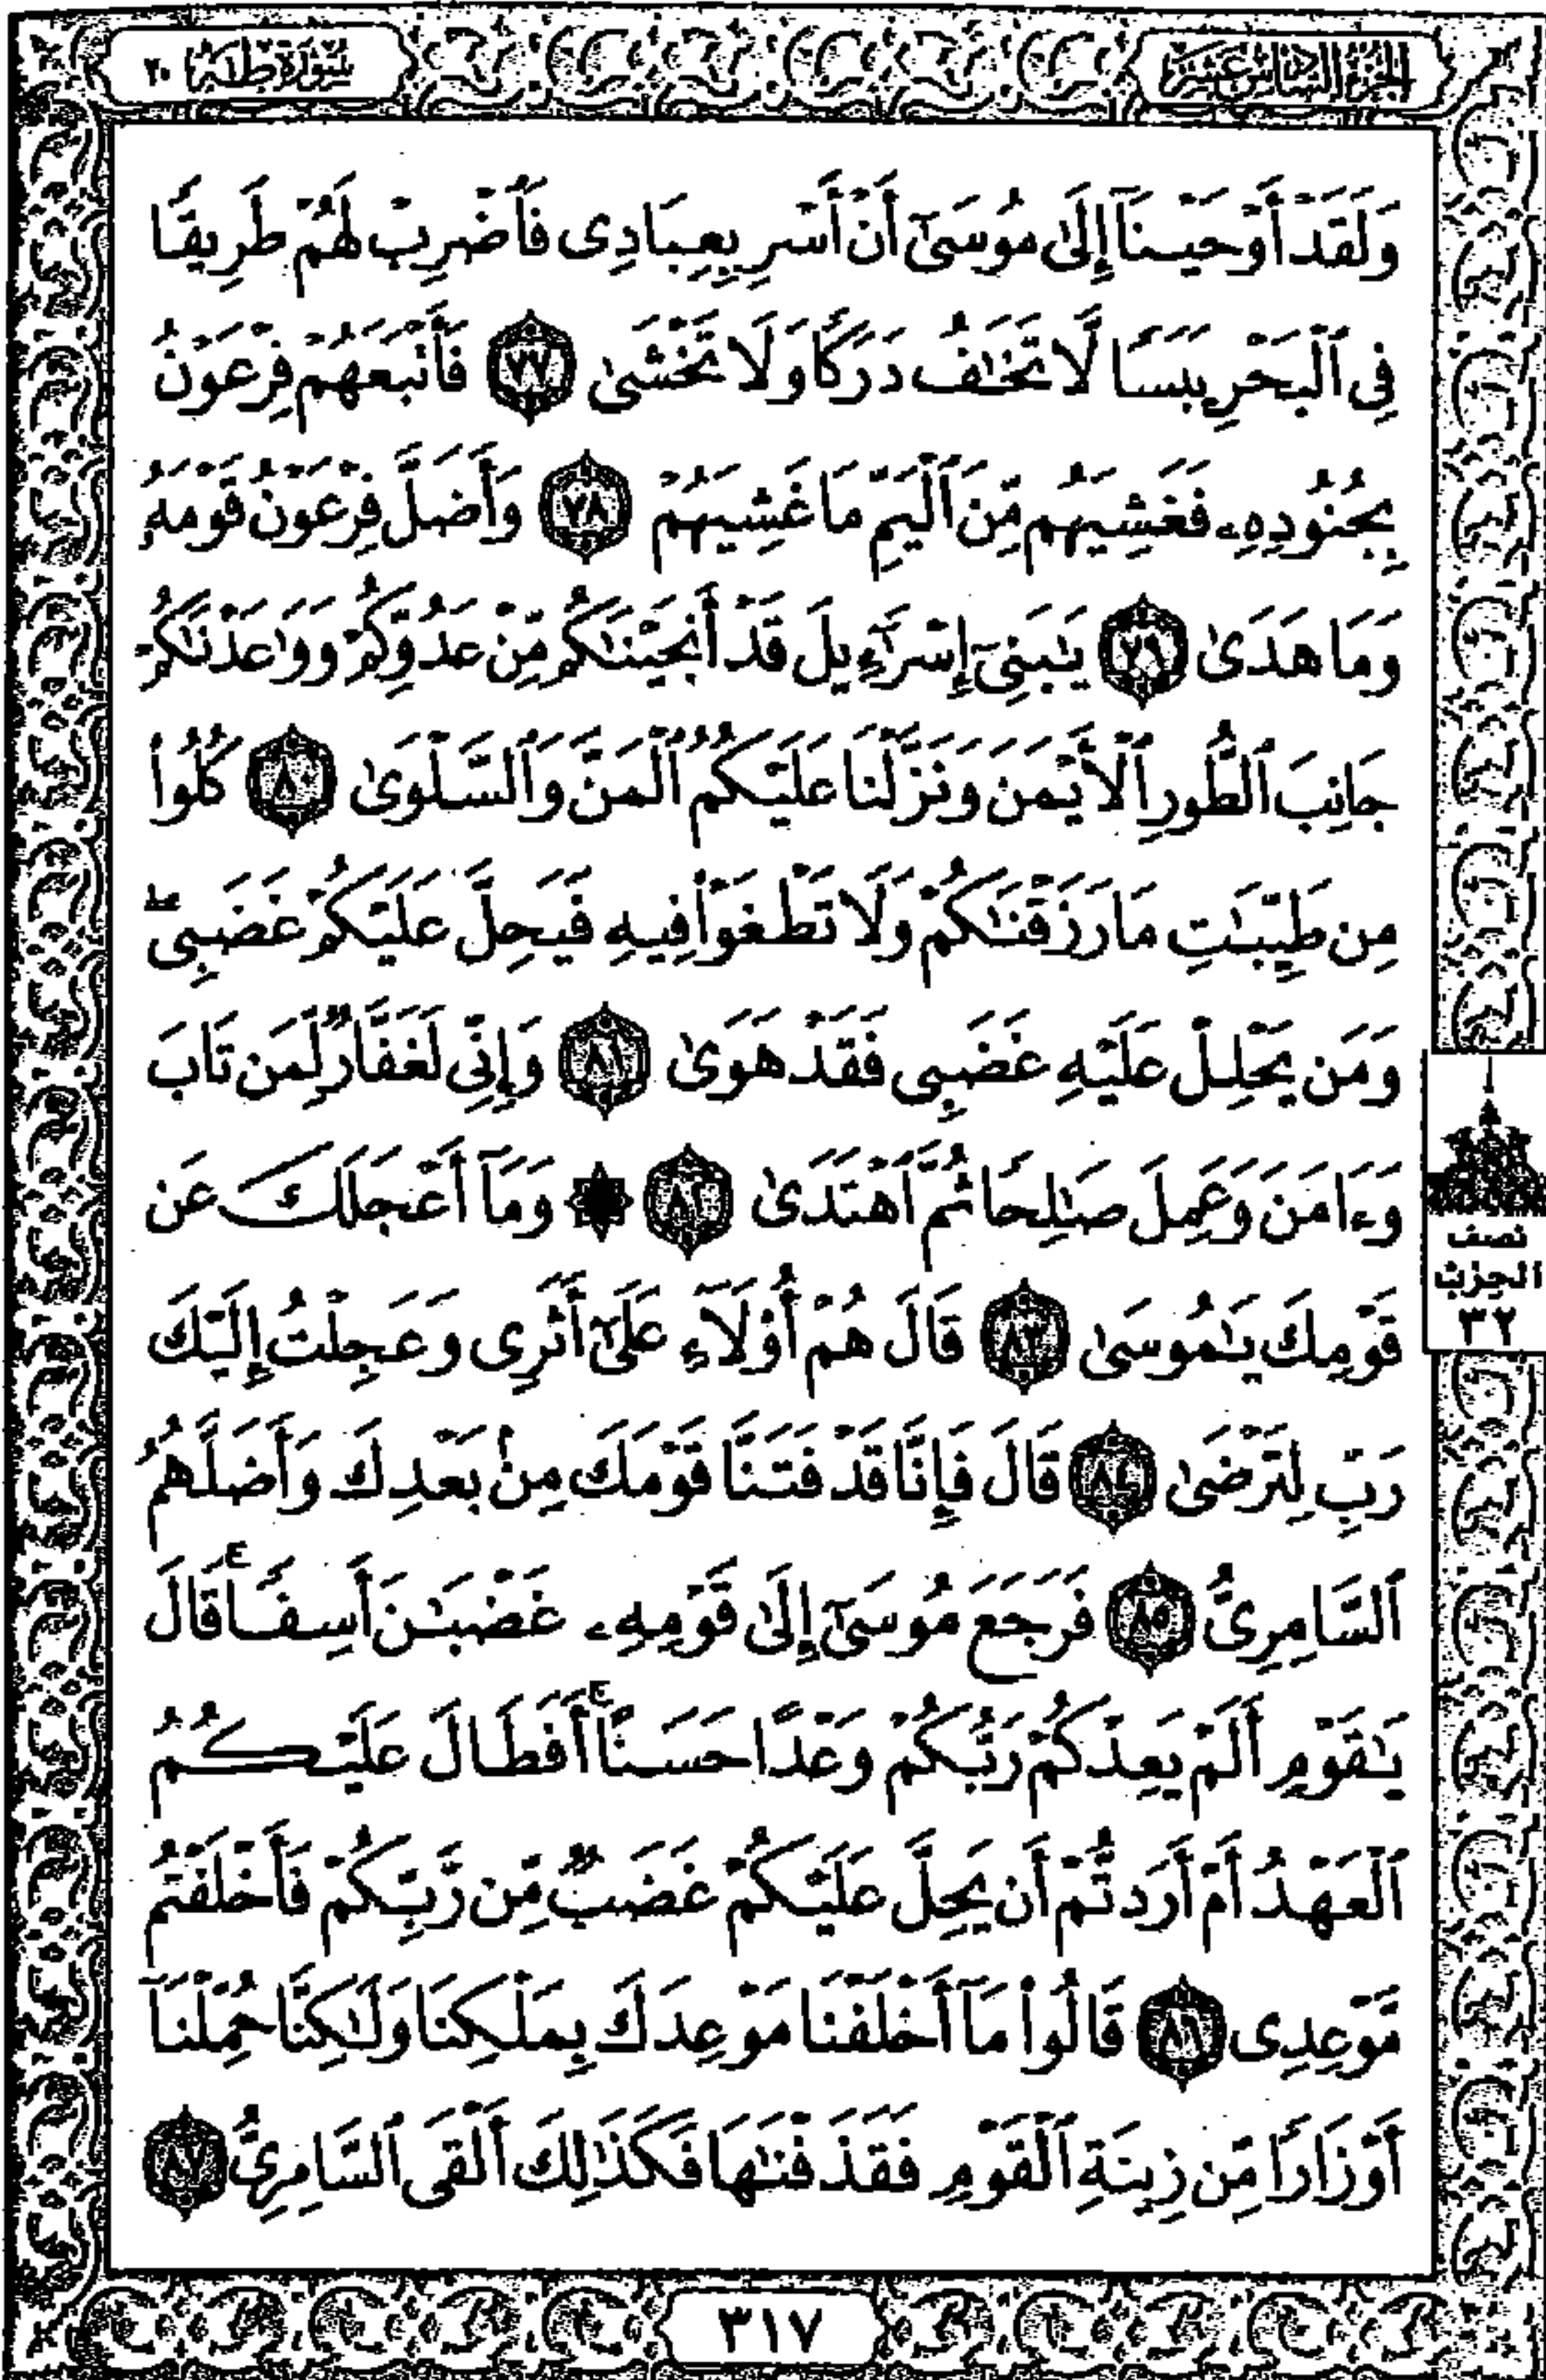 الجزء السادس عشر
سورة طه ٢٠
وَلَقَدْ أَوْحَيْنَآ إِلَىٰ مُوسَىٰٓ أَنْ أَسْرِ بِعِبَادِى فَٱضْرِبْ لَهُمْ طَرِيقًا
فِى ٱلْبَحْرِ يَبَسًا لَّا تَخَٰفُ دَرَكًا وَلَا تَخْشَىٰ ٧٧ فَأَتْبَعَهُمْ فِرْعَوْنُ
بِجُنُودِهِۦ فَغَشِيَهُم مِّنَ ٱلْيَمِّ مَا غَشِيَهُمْ ٧٨ وَأَضَلَّ فِرْعَوْنُ قَوْمَهُۥ
وَمَا هَدَىٰ ٧٩ يَٰبَنِىٓ إِسْرَٰٓءِيلَ قَدْ أَنجَيْنَٰكُم مِّنْ عَدُوِّكُمْ وَوَٰعَدْنَٰكُمْ
جَانِبَ ٱلطُّورِ ٱلْأَيْمَنَ وَنَزَّلْنَا عَلَيْكُمُ ٱلْمَنَّ وَٱلسَّلْوَىٰ ٨٠ كُلُوا۟
مِن طَيِّبَٰتِ مَا رَزَقْنَٰكُمْ وَلَا تَطْغَوْا۟ فِيهِ فَيَحِلَّ عَلَيْكُمْ غَضَبِى ۖ
وَمَن يَحْلِلْ عَلَيْهِ غَضَبِى فَقَدْ هَوَىٰ ٨١ وَإِنِّى لَغَفَّارٌ لِّمَن تَابَ
وَءَامَنَ وَعَمِلَ صَٰلِحًا ثُمَّ ٱهْتَدَىٰ ٨٢ ۞ وَمَآ أَعْجَلَكَ عَن
قَوْمِكَ يَٰمُوسَىٰ ٨٣ قَالَ هُمْ أُو۟لَآءِ عَلَىٰٓ أَثَرِى وَعَجِلْتُ إِلَيْكَ
رَبِّ لِتَرْضَىٰ ٨٤ قَالَ فَإِنَّا قَدْ فَتَنَّا قَوْمَكَ مِنۢ بَعْدِكَ وَأَضَلَّهُمُ
ٱلسَّامِرِىُّ ٨٥ فَرَجَعَ مُوسَىٰٓ إِلَىٰ قَوْمِهِۦ غَضْبَٰنَ أَسِفًا ۚ قَالَ
يَٰقَوْمِ أَلَمْ يَعِدْكُمْ رَبُّكُمْ وَعْدًا حَسَنًا ۚ أَفَطَالَ عَلَيْكُمُ
ٱلْعَهْدُ أَمْ أَرَدتُّمْ أَن يَحِلَّ عَلَيْكُمْ غَضَبٌ مِّن رَّبِّكُمْ فَأَخْلَفْتُم
مَّوْعِدِى ٨٦ قَالُوا۟ مَآ أَخْلَفْنَا مَوْعِدَكَ بِمَلْكِنَا وَلَٰكِنَّا حُمِّلْنَآ
أَوْزَارًا مِّن زِينَةِ ٱلْقَوْمِ فَقَذَفْنَٰهَا فَكَذَٰلِكَ أَلْقَى ٱلسَّامِرِىُّ ٨٧
نصف
الحزب
٣٢
٣١٧